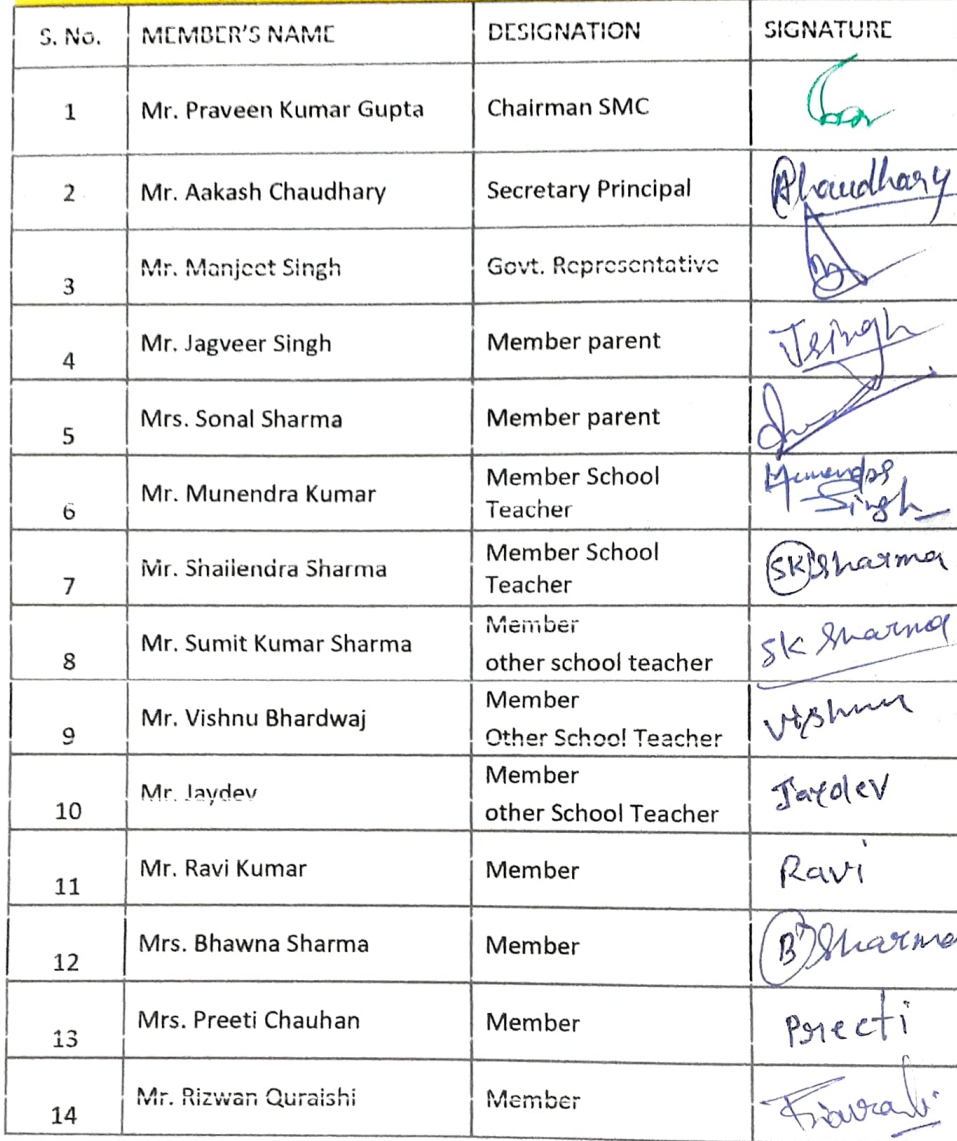 S. No. MEMBER'S NAME DESIGNATION SIGNATURE
1 Mr. Praveen Kumar Gupta Chairman SMC
2 Mr. Aakash Chaudhary Secretary Principal AChaudhary
3 Mr. Manjeet Singh Govt. Representative
4 Mr. Jagveer Singh Member parent Jsingh
5 Mrs. Sonal Sharma Member parent
6 Mr. Munendra Kumar Member School
Teacher
Singh
7 Mr. Shailendra Sharma Member School
Teacher
SK Sharma
8 Mr. Sumit Kumar Sharma Member
other school teacher
SK Sharma
9 Mr. Vishnu Bhardwaj Member
Other School Teacher
Vishnu
10 Mr. Jaydev Member
other School Teacher
Jaydev
11 Mr. Ravi Kumar Member Ravi
12 Mrs. Bhawna Sharma Member B Sharma
13 Mrs. Preeti Chauhan Member Preeti
14 Mr. Rizwan Quraishi Member